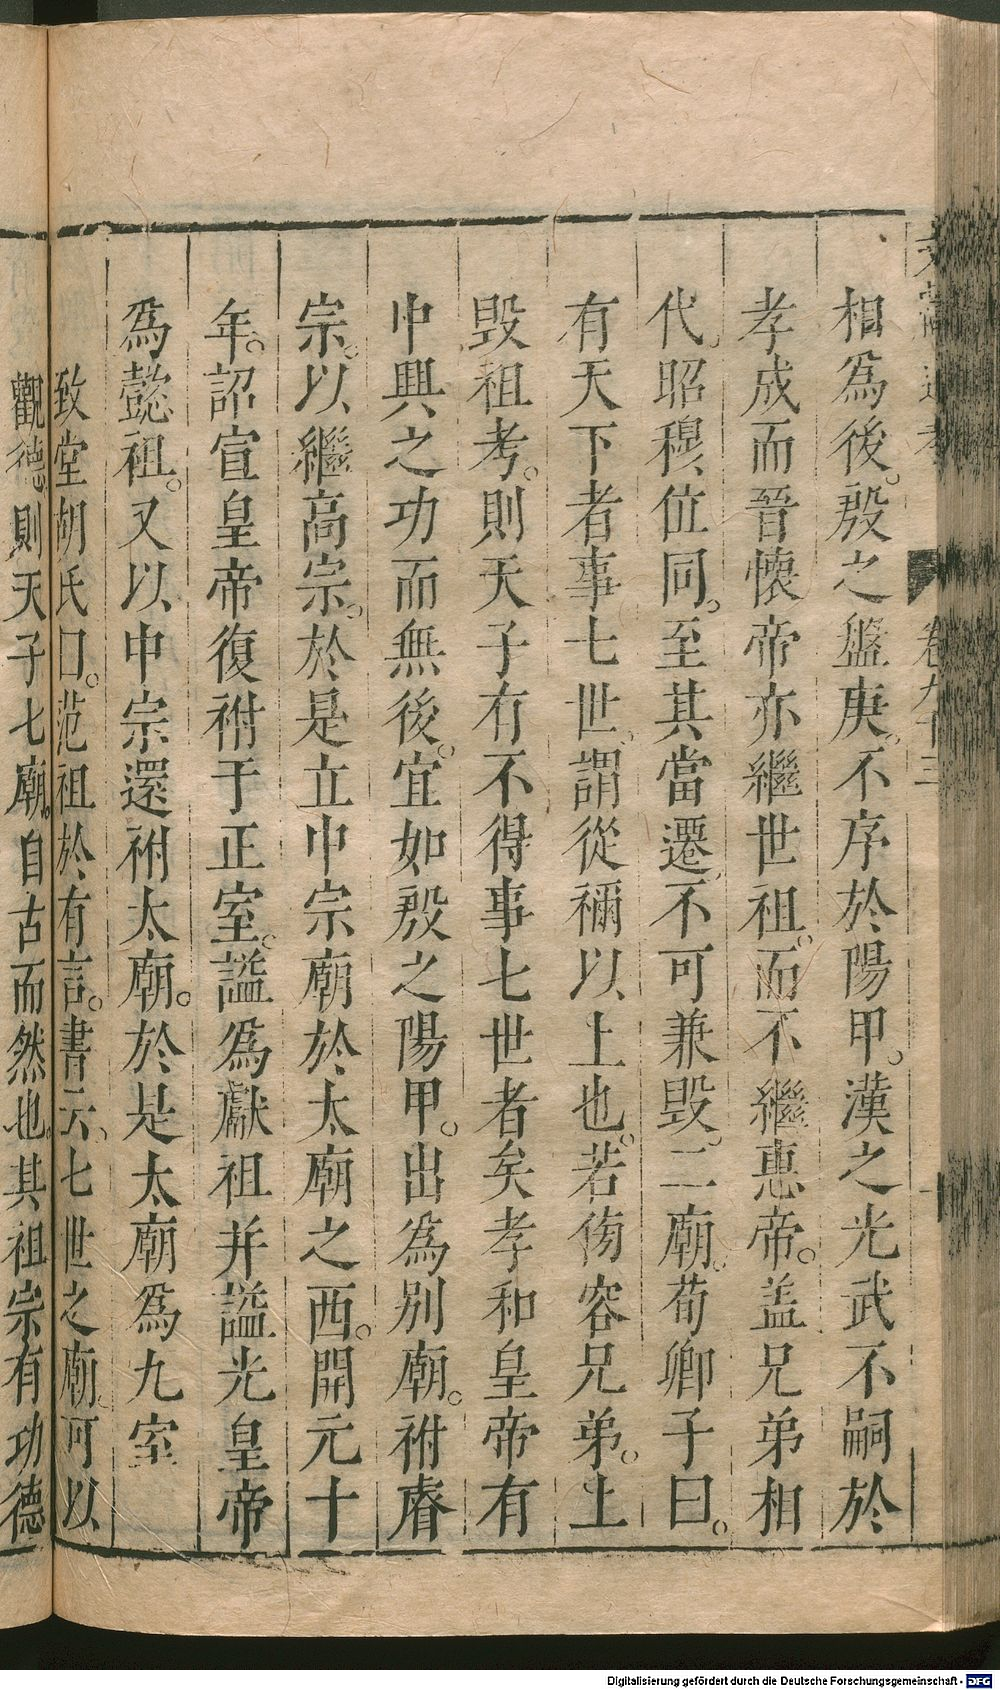 相爲後。殷之盤庚、不序於陽甲。漢之光武不嗣於
孝成而晉懷帝亦繼世祖。而不繼惠帝。盖兄弟相
代、昭穆位同。至其當遷、不可兼毀二廟。荀卿子曰。
有天下者事七世、謂從禰以上也。若傍容兄弟。上
毀祖考。則天子有不得事七世者矣孝和皇帝有
中興之功而無後。宜如殷之陽甲。出爲別廟。祔睿
宗。以繼高宗。於是立中宗廟於太廟之西。開元十
年。詔宣皇帝復祔于正室。謚爲獻祖并謚光皇帝
爲懿祖。又以中宗還祔太廟。於是太廟爲九室
致堂胡氏曰。范祖於有言。書云、七世之廟。可以
觀德、則天子七廟。自古而然也。其祖宗有功德
卷九十三
Digitalisierung gefördert durch die Deutsche Forschungsgemeinschaft - DFG